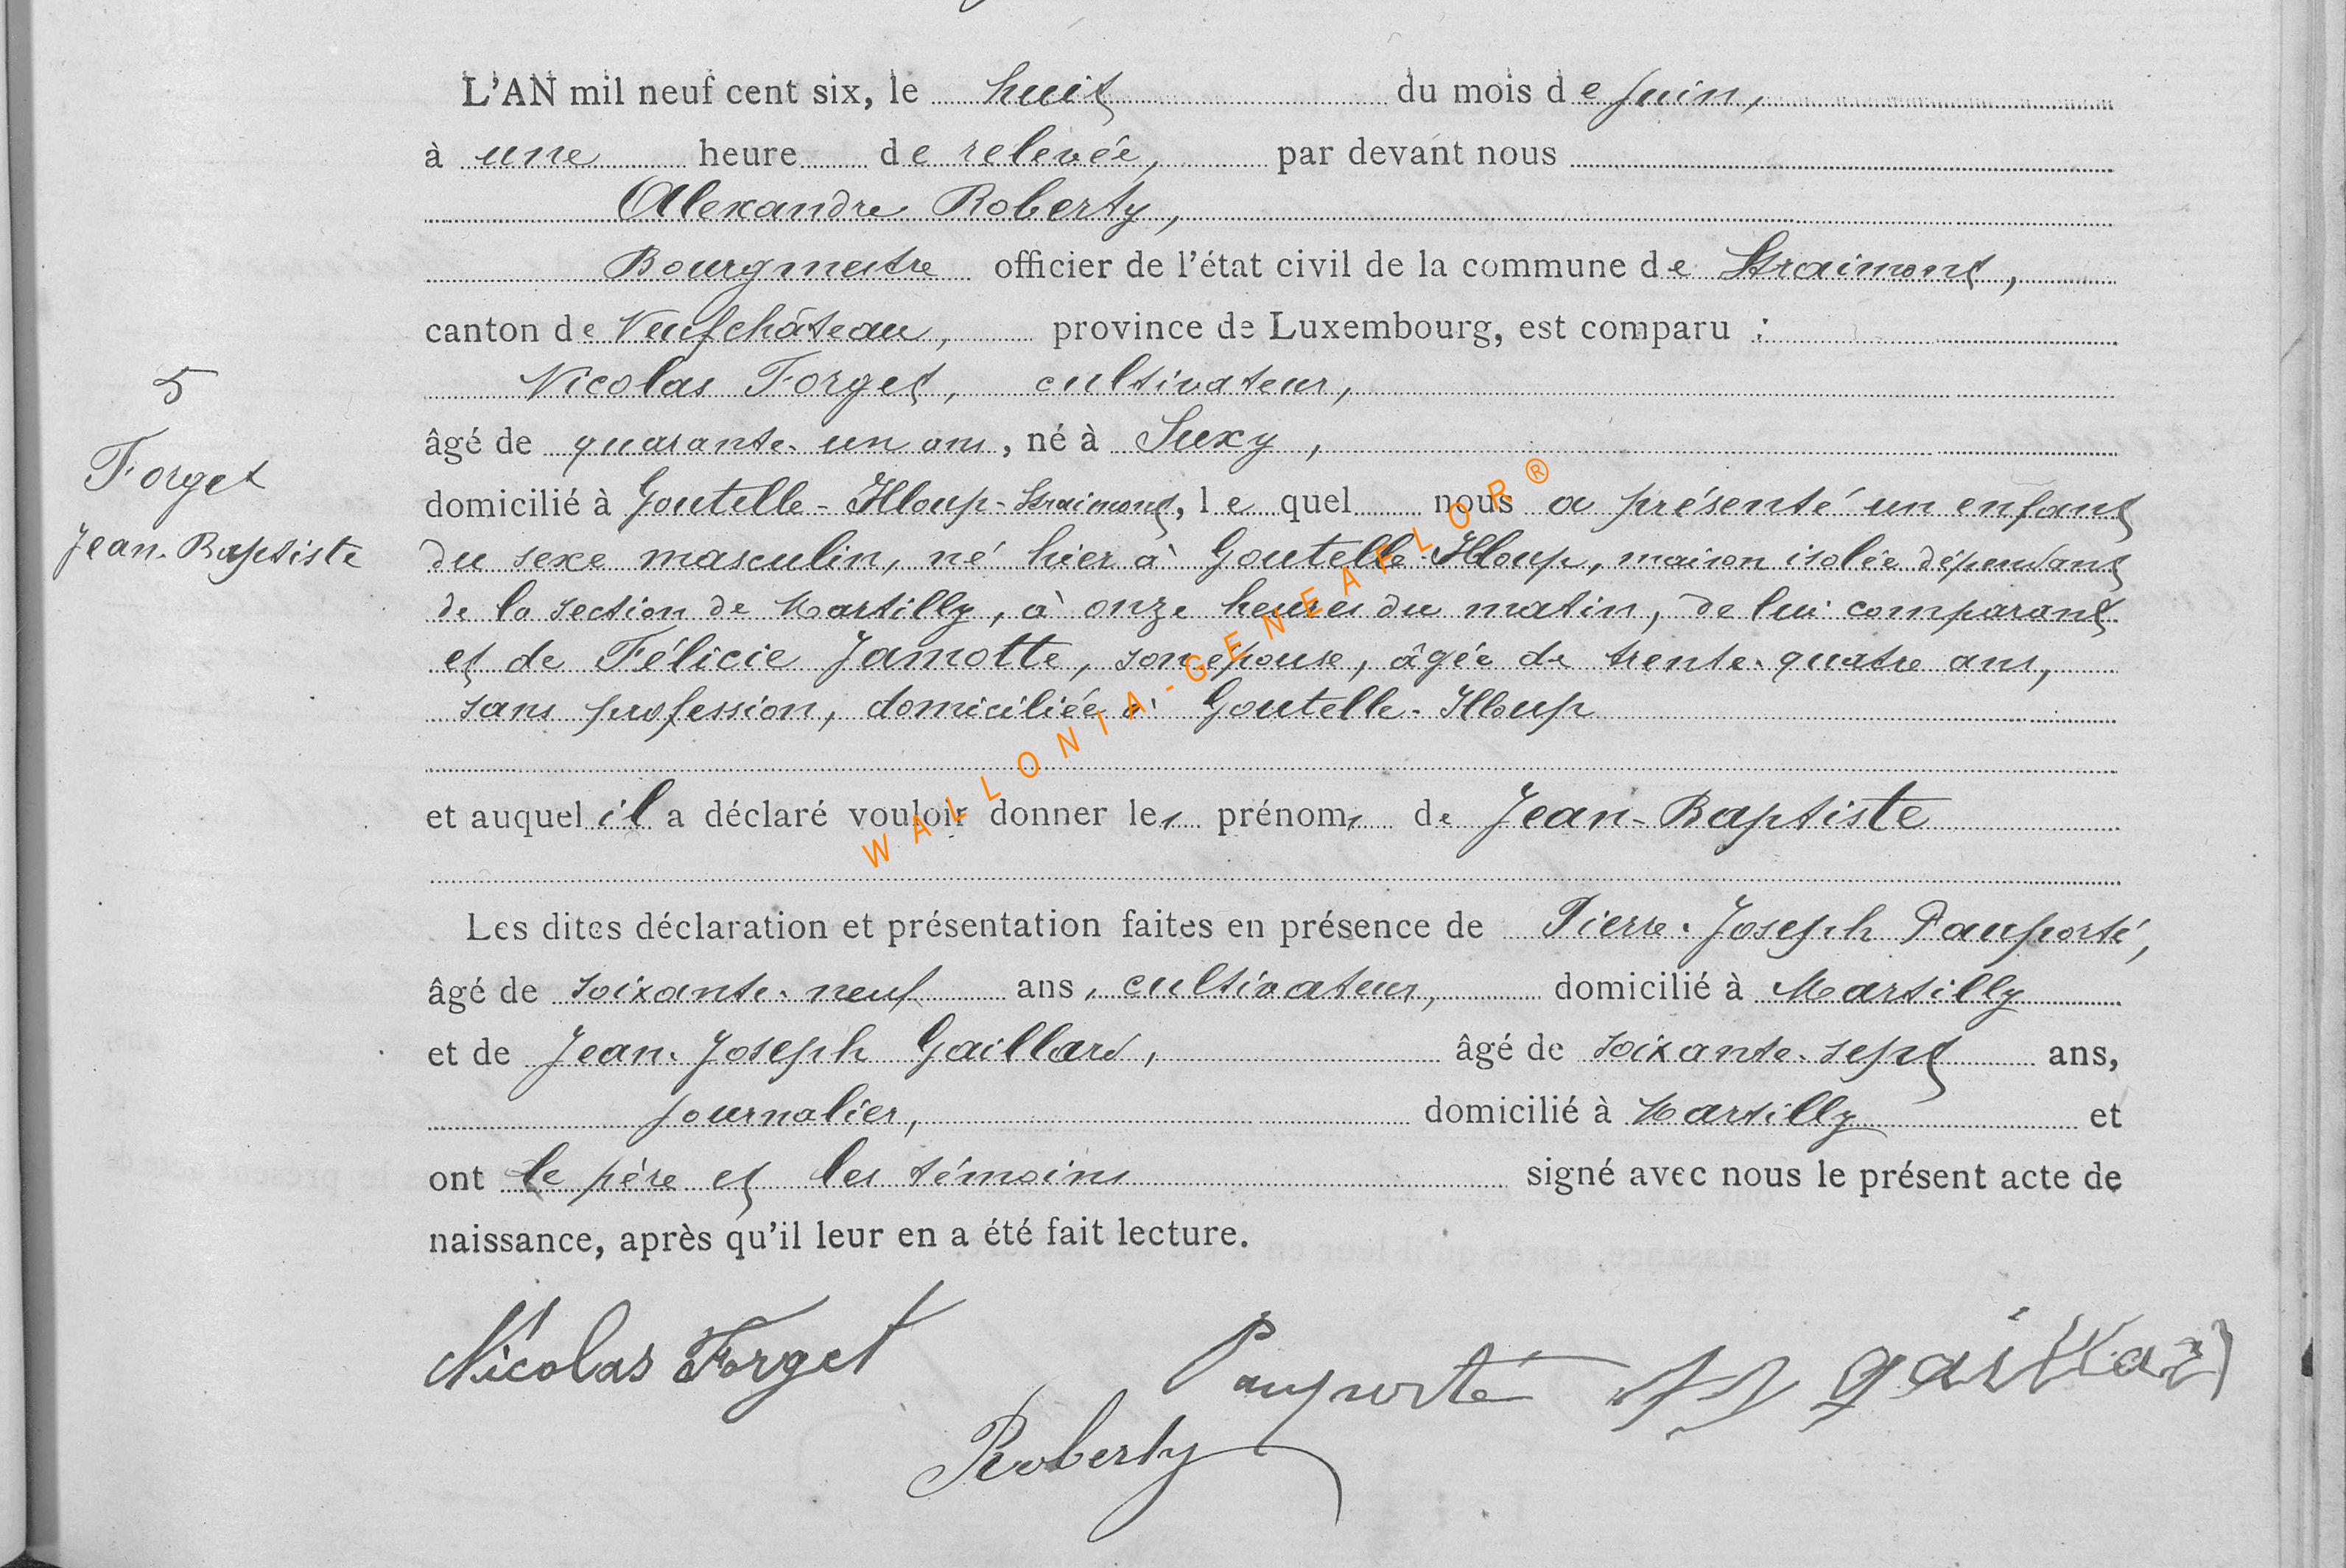 L'AN mil neuf cent six, le huit du mois de juin,
à une heure de relevée, par devant nous
Alexandre Roberty,
Bourgmestre officier de l'état civil de la commune de Straimont,
canton de Neufchâteau, province de Luxembourg, est comparu :
Nicolas Forget, cultivateur,
5
âgé de quarante-un ans, né à Suxy,
Forget
domicilié à Goutelle-Hloup-Straimont, lequel nous a présenté un enfant
Jean-Baptiste
du sexe masculin, né hier à Goutelle-Hloup, maison isolée dépendant
de la section de Martilly, à onze heures du matin, de lui comparant
et de Félicie Jamotte, son épouse, âgée de trente-quatre ans,
sans profession, domiciliée à Goutelle-Hloup
et auquel il a déclaré vouloir donner les prénoms de Jean-Baptiste
WALLONIA-GENEAFLOR®
Les dites déclaration et présentation faites en présence de Pierre-Joseph Pauporté,
âgé de soixante-neuf ans, cultivateur, domicilié à Martilly
et de Jean-Joseph Gaillard, âgé de soixante-sept ans,
journalier, domicilié à Martilly et
ont le père et les témoins signé avec nous le présent acte de
naissance, après qu'il leur en a été fait lecture.
Nicolas Forget Pauporté JJ gaillard
Roberty